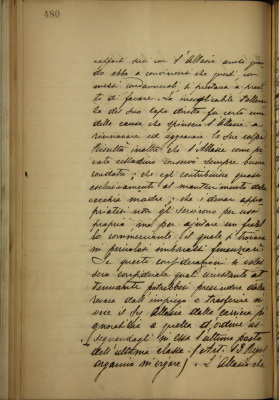 480
rapporti suoi con l'Allasia anche quan
do ebbe a convincersi che questi com
messi condannevoli si prestava a presti
ti di favore. La inesplicabile tolleran
za del suo capo diretto fu certo una
delle cause che spinsero l'Allasia a
rinnovare ed aggravare le sue colpe.
Risulta inoltre che l'Allasia come pri
vato cittadino conservò sempre buona
condotta; che egli contribuiva quasi
esclusivamente al mantenimento della
vecchia madre; che i denari appro
priatisi non gli servirono per uso
proprio ma per aiutare un fratel
lo commerciante il quale si trovava
in periclosi imbarazzi finanziari.
Se queste considerazioni si voles
sero considerare quali circostanze at
tenuanti potrebbesi prescindere dalla
revoca dall'impiego e trasferire in
vece il Sig. Allasia dalla carriera pi
gnoratizia a quella d'ordine as
segnandogli in essa l'ultimo posto
dell'ultima classe. (Art. 13 Regol.
organico in vigore). L'Allasia che